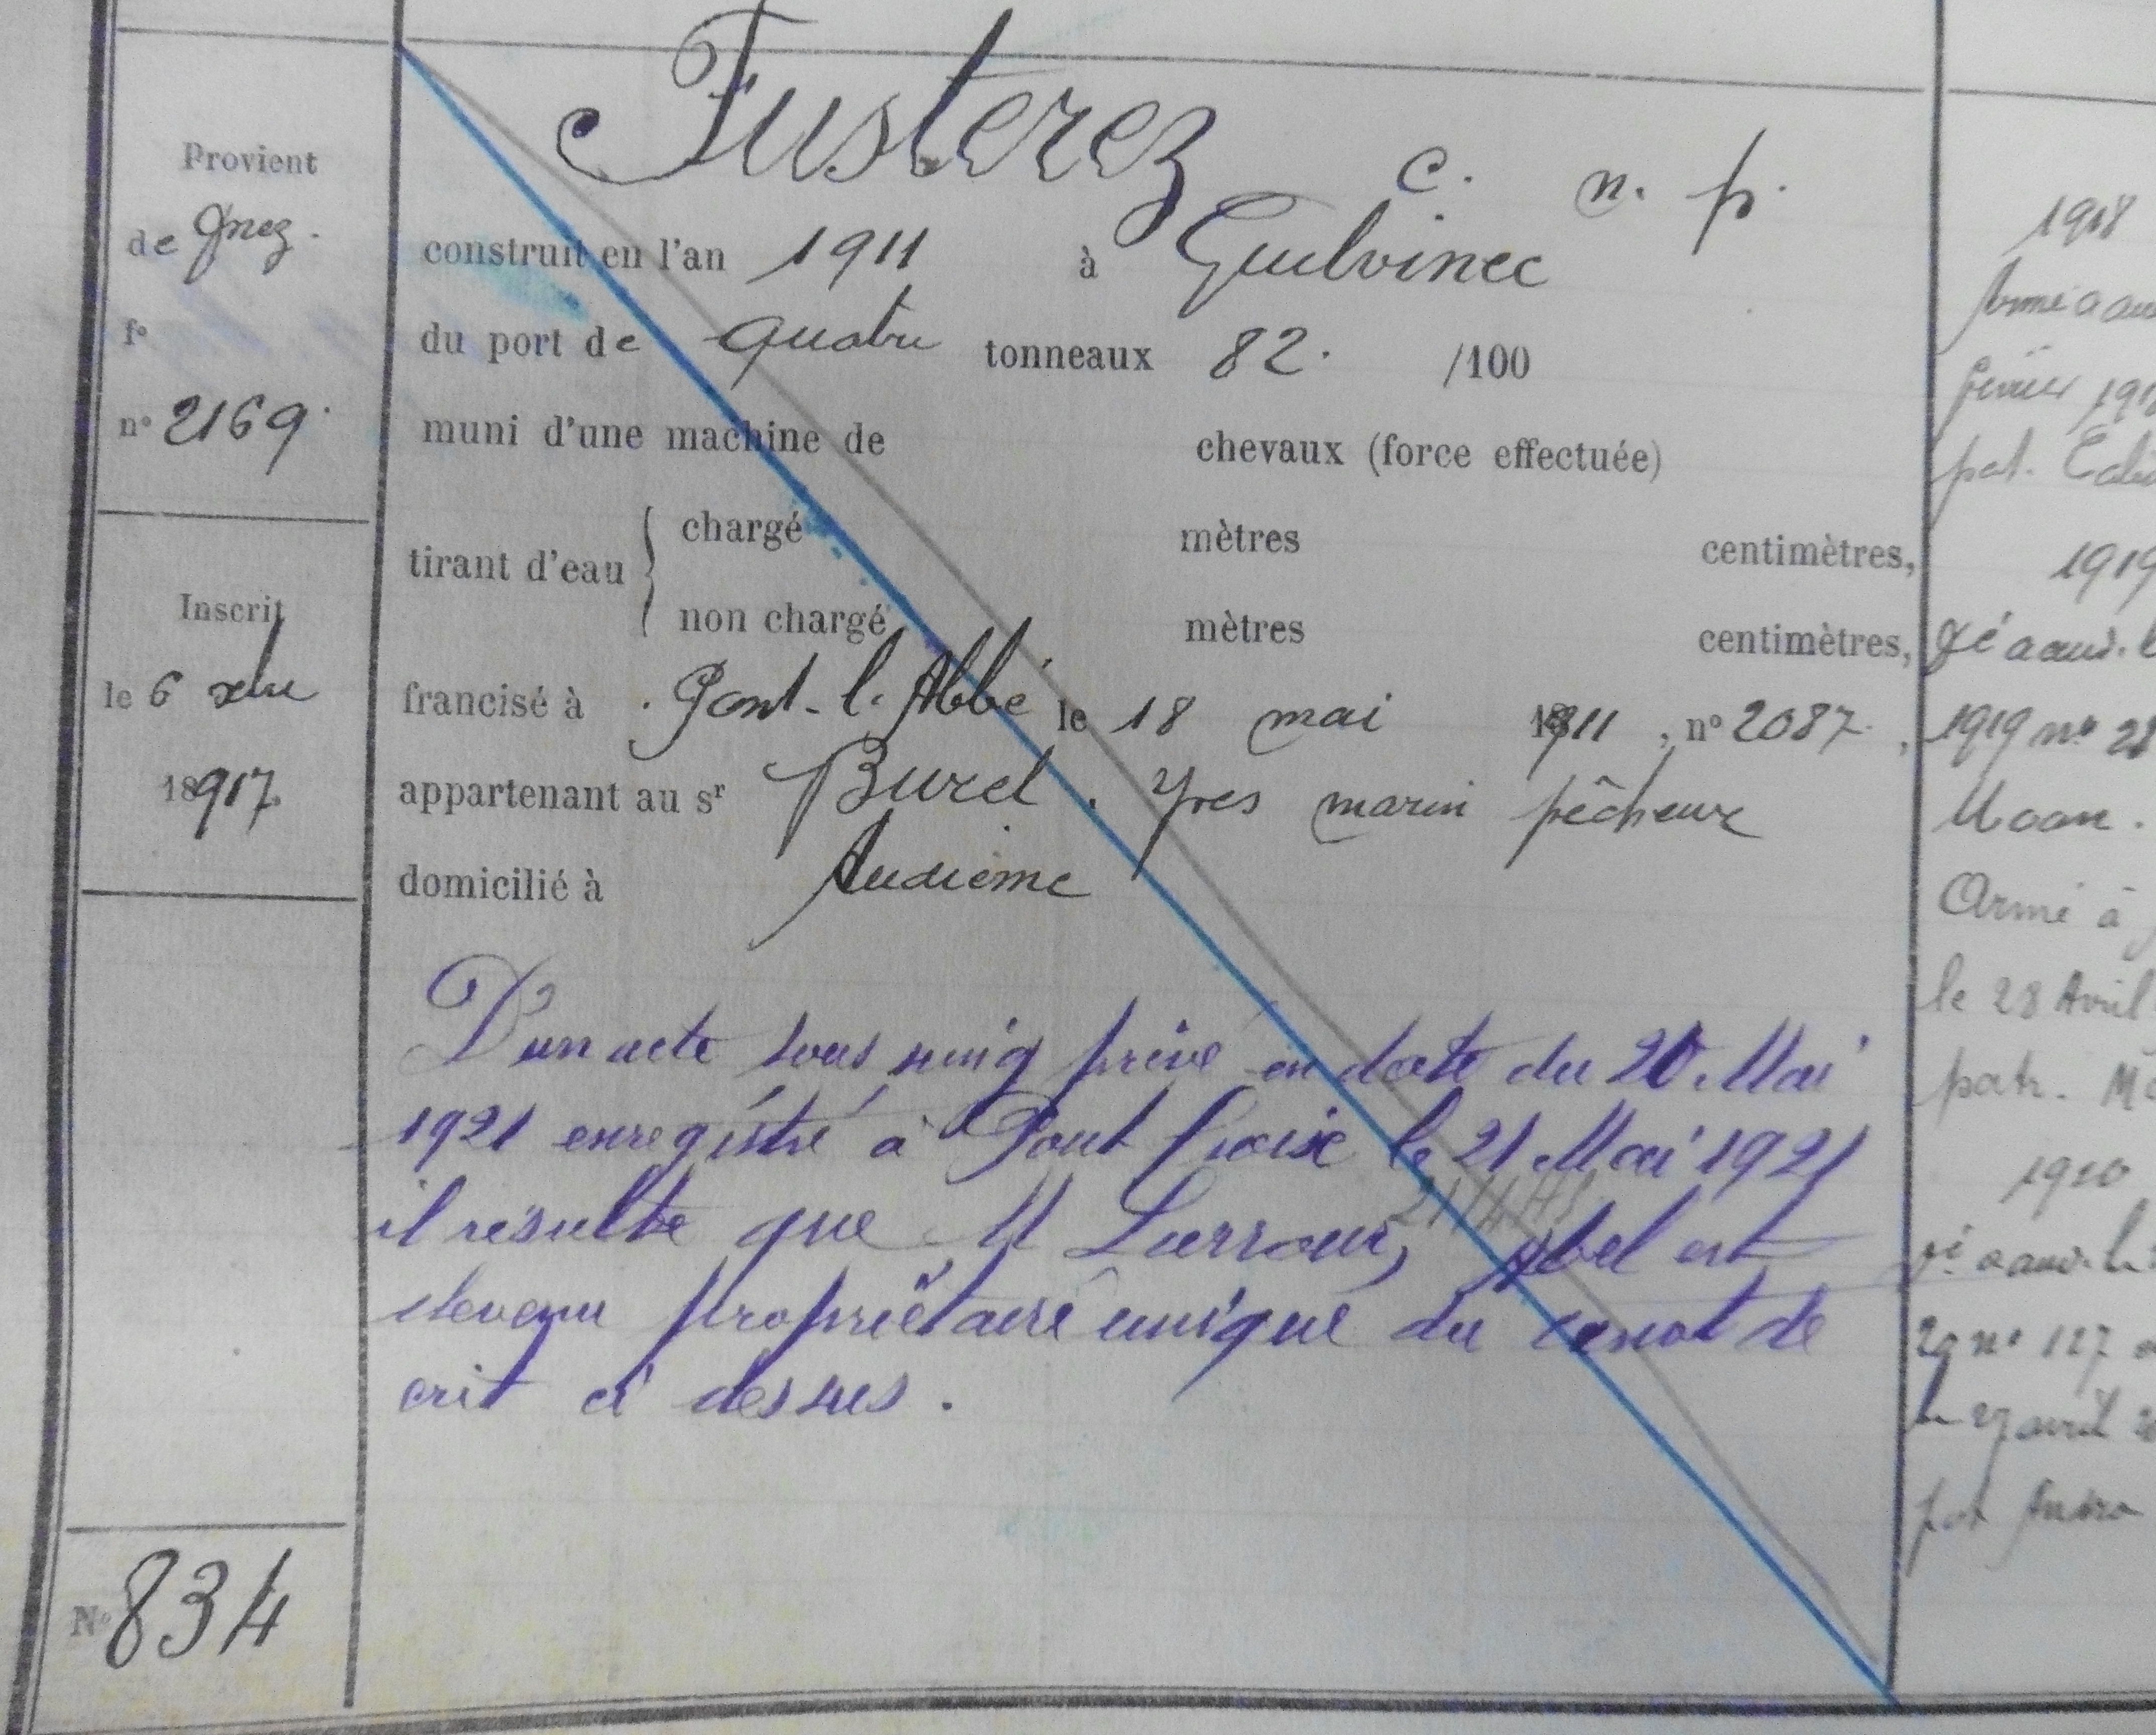 Fusterez c. n. p.
Provient
de Gnez.
construit en l'an 1911 à Guilvinec
f°
du port de quatre tonneaux 82. /100
n° 2169
muni d'une machine de chevaux (force effectuée)
tirant d'eau { chargé mètres centimètres,
non chargé mètres centimètres,
Inscrit
le 6 xbre
18917.
francisé à Pont-l'Abbé le 18 mai 1911, n° 2087,
appartenant au sr Burel. Yves marin pêcheur
domicilié à Audierne
D'un acte sous seing privé en date du 20 Mai
1921 enregistré à Pont Croix le 21 Mai 1921
il résulte que M abel est
devenu propriétaire unique du canot de
crit ci dessus.
N° 834
1918
février 191
pat.
1919
1919 n° 28
Moan.
Armé à
le 28 Avril
patr. M
1920
29 n° 127
le 27 avril